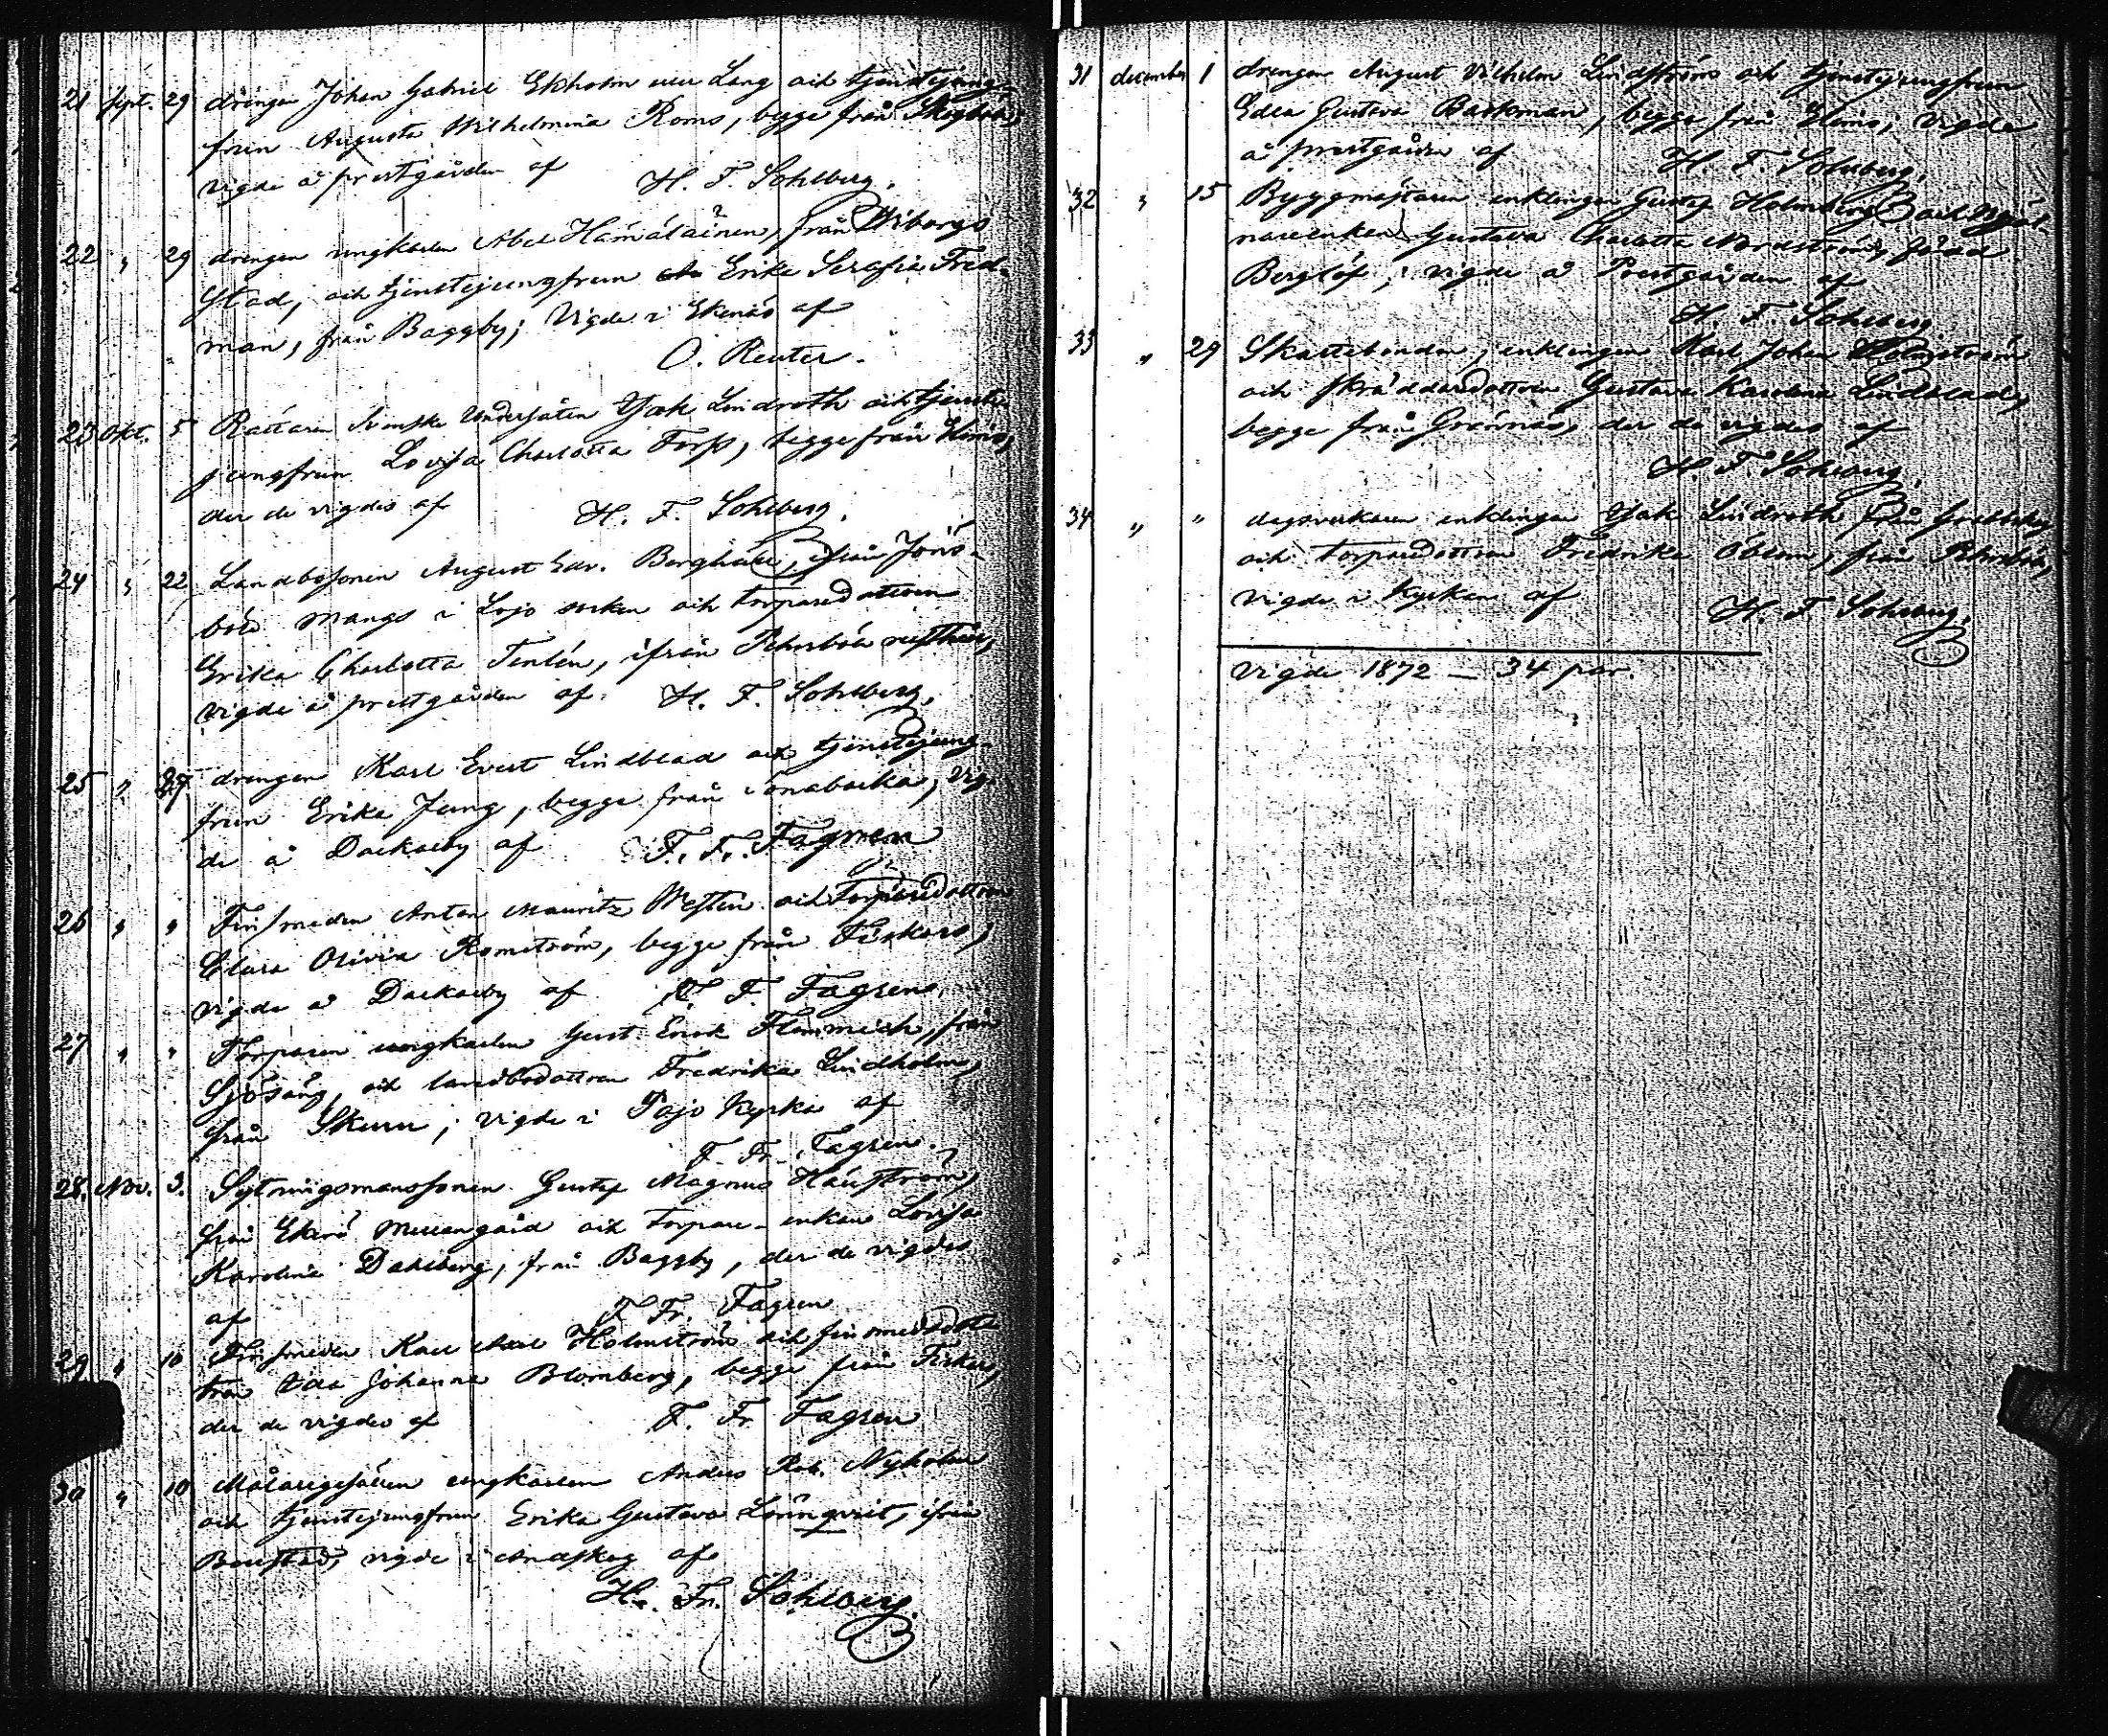 21 Sept. 29 drengen Johan Gabriel Ekholm eller Lang och tjenstejung-
frun Augusta Wilhelmina Roms, begge från Skogböle
vigde å prestgården af H. F. Sohlberg.
22 " 29 drengen ungkarlen Abel Hämäläinen, från Wiborgs
Stad, och tjenstejungfrun Erika Serafia Fred-
man, från Baggby; Vigde i Ekenäs af
O. Reuter.
23 Okt. 5 Rättaren Svenske Undersåten Isak Lindroth och tjenste
jungfrun Lovisa Charlotta Forss, begge från Elimo,
der de vigdes af H. F. Sohlberg.
24 " 22 Landbosonen August Edv. Berghäll, ifrån Jöns-
böle Mangs i Lojo socken och torparedottren
Erika Charlotta Tenlén, ifrån Pehrsböle rusthåll,
vigde å prestgården af H. F. Sohlberg.
25 " 27 drengen Karl Evert Lindblad och tjenstejung-
frun Erika Jung, begge från Sonabacka, vig-
de å Dackarby af F. Fr. Fagren
26 " " Finsmeden Anton Mauritz Westén och Torparedottren
Clara Olivia Romström, begge från Fiskars,
vigde å Dackarby af F. F. Fagren.
27 " " Torparen ungkarlen Gust. Erik Flemmich, från
Sjösäng, och landbodottren Fredrika Lindholm,
från Skuru; vigde i Pojo Kyrka af
F. Fr. Fagren.
28. Nov. 3. Sytningsmanssonen Gustaf Magnus
från Ekerö Mellangård och Torpare-enkan Lovisa
Karolina Dahlberg, från Baggby, der de vigdes
af F. Fr. Fagren
29 " 10 Finsmeden Karl Holmström och finsmedsdot-
tren Ida Johanna Blomberg, begge från Fiskars,
der de vigdes af F. Fr. Fagren
30 " 10 Målaregesällen ungkarlen Anders Rob. Nyholm
och tjenstejungfrun Erika Gustava Lönnqvist, ifrån
vigde i Antskog af
H. Fr. Sohlberg.
31 december 1 drengen August Vilhelm Lindström och tjenstejungfrun
Edla Gustava Backman, begge från Elimo; vigde
å prestgården af H. F. Sohlberg.
32 " 15 Byggmästaren enklingen Gustaf Holmberg och
enkan Gustava Charlotta Nordström, född
Berglöf; vigde å Prestgården af
H. F. Sohlberg
33 " 29 Skattebonden, enklingen Karl Johan Holmström
och skräddaredottren Gustava Karolina Lindblad,
begge från Grännäs, der de vigdes af
H. F. Sohlberg.
34 " " dagsverkaren enklingen Isak Lindroth från
och torparedottren Fredrika Öblom, från Pehrsböle,
vigde i Kyrkan af H. F. Sohlberg.
Vigde 1872 — 34 par.